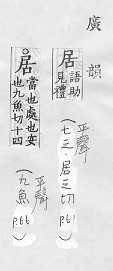 廣韻
居
語助
見禮
平聲
(七三·居三切 P.61)
居
當也處也安
也九魚切十四
平聲
(九魚 P.66)